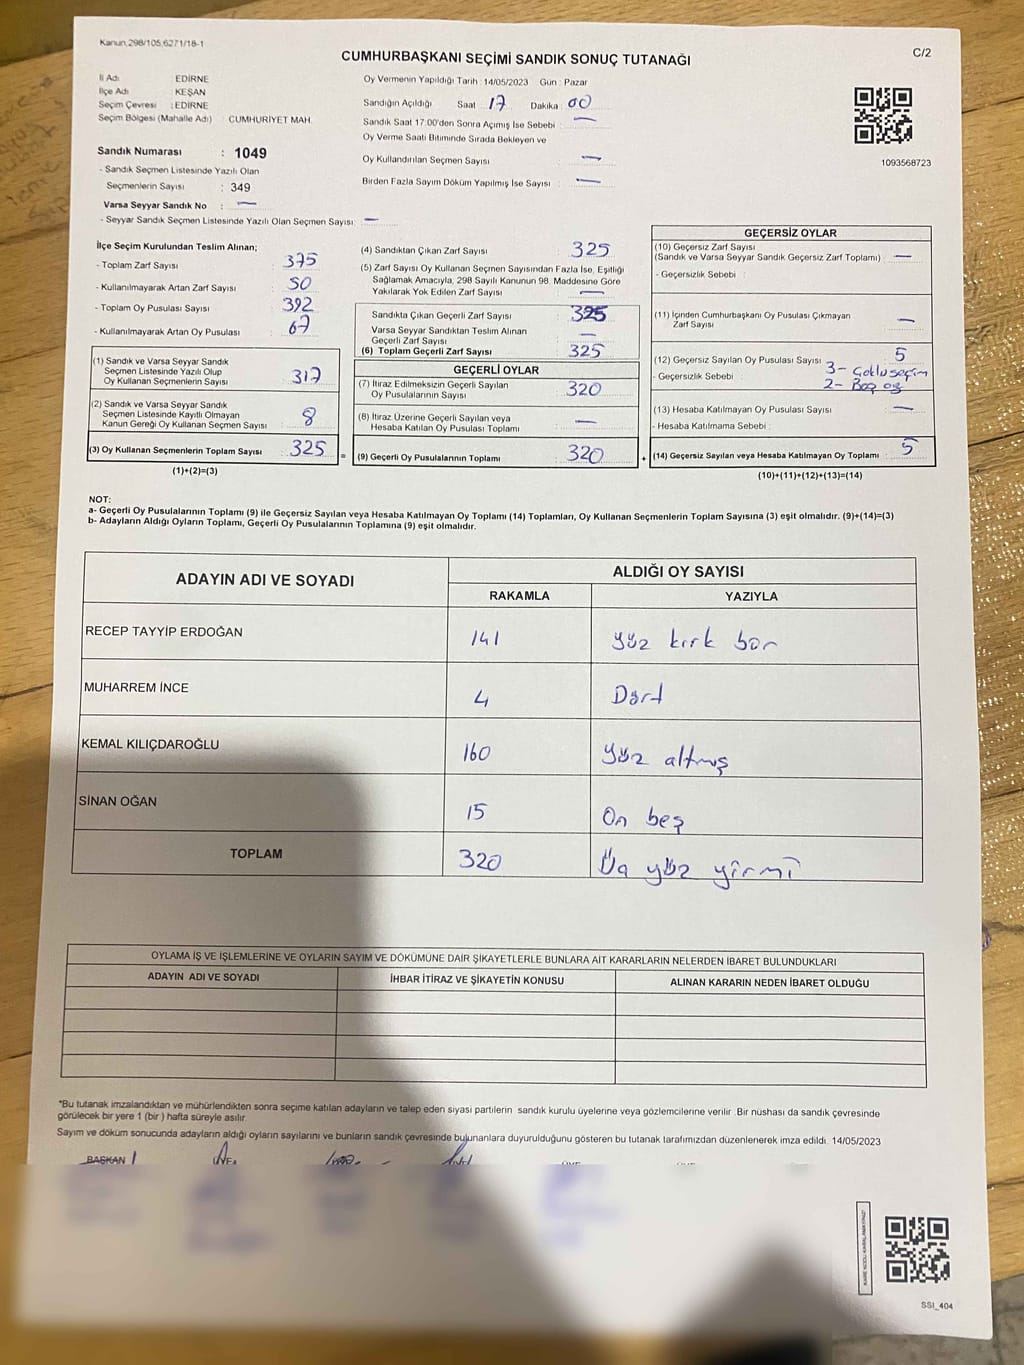 Kanun,298/105,6271/18-1
C/2
CUMHURBAŞKANI SEÇİMİ SANDIK SONUÇ TUTANAĞI
İl Adı : EDİRNE
İlçe Adı : KEŞAN
Seçim Çevresi : EDİRNE
Seçim Bölgesi (Mahalle Adı) CUMHURİYET MAH.
Sandık Numarası : 1049
- Sandık Seçmen Listesinde Yazılı Olan
Seçmenlerin Sayısı : 349
Varsa Seyyar Sandık No : —
- Seyyar Sandık Seçmen Listesinde Yazılı Olan Seçmen Sayısı: —
Oy Vermenin Yapıldığı Tarih : 14/05/2023 Gün : Pazar
Sandığın Açıldığı Saat 17 Dakika 00
Sandık Saat 17:00'den Sonra Açımış İse Sebebi : —
Oy Verme Saati Bitiminde Sırada Bekleyen ve
Oy Kullandırılan Seçmen Sayısı —
Birden Fazla Sayım Döküm Yapılmış İse Sayısı : —
1093568723
İlçe Seçim Kurulundan Teslim Alınan;
- Toplam Zarf Sayısı : 375
- Kullanılmayarak Artan Zarf Sayısı : 50
- Toplam Oy Pusulası Sayısı : 392
- Kullanılmayarak Artan Oy Pusulası : 67
(1) Sandık ve Varsa Seyyar Sandık
Seçmen Listesinde Yazılı Olup
Oy Kullanan Seçmenlerin Sayısı : 317
(2) Sandık ve Varsa Seyyar Sandık
Seçmen Listesinde Kayıtlı Olmayan
Kanun Gereği Oy Kullanan Seçmen Sayısı : 8
(3) Oy Kullanan Seçmenlerin Toplam Sayısı : 325
(1)+(2)=(3)
(4) Sandıktan Çıkan Zarf Sayısı : 325
(5) Zarf Sayısı Oy Kullanan Seçmen Sayısından Fazla İse, Eşitliği
Sağlamak Amacıyla, 298 Sayılı Kanunun 98. Maddesine Göre
Yakılarak Yok Edilen Zarf Sayısı : —
Sandıkta Çıkan Geçerli Zarf Sayısı : 325
Varsa Seyyar Sandıktan Teslim Alınan
Geçerli Zarf Sayısı : —
(6) Toplam Geçerli Zarf Sayısı : 325
GEÇERLİ OYLAR
(7) İtiraz Edilmeksizin Geçerli Sayılan
Oy Pusulalarının Sayısı : 320
(8) İtiraz Üzerine Geçerli Sayılan veya
Hesaba Katılan Oy Pusulası Toplamı : —
= (9) Geçerli Oy Pusulalarının Toplamı : 320
GEÇERSİZ OYLAR
(10) Geçersiz Zarf Sayısı
(Sandık ve Varsa Seyyar Sandık Geçersiz Zarf Toplamı) : —
- Geçersizlik Sebebi :
(11) İçinden Cumhurbaşkanı Oy Pusulası Çıkmayan
Zarf Sayısı : —
(12) Geçersiz Sayılan Oy Pusulası Sayısı : 5
- Geçersizlik Sebebi : 3- Çoklu seçim
2- Boş oy
(13) Hesaba Katılmayan Oy Pusulası Sayısı : —
- Hesaba Katılmama Sebebi :
+ (14) Geçersiz Sayılan veya Hesaba Katılmayan Oy Toplamı : 5
(10)+(11)+(12)+(13)=(14)
NOT:
a- Geçerli Oy Pusulalarının Toplamı (9) ile Geçersiz Sayılan veya Hesaba Katılmayan Oy Toplamı (14) Toplamları, Oy Kullanan Seçmenlerin Toplam Sayısına (3) eşit olmalıdır. (9)+(14)=(3)
b- Adayların Aldığı Oyların Toplamı, Geçerli Oy Pusulalarının Toplamına (9) eşit olmalıdır.
ADAYIN ADI VE SOYADI
ALDIĞI OY SAYISI
RAKAMLA YAZIYLA
RECEP TAYYİP ERDOĞAN 141 yüz kırk bir
MUHARREM İNCE 4 Dört
KEMAL KILIÇDAROĞLU 160 Yüz altmış
SİNAN OĞAN 15 On beş
TOPLAM 320 Üç yüz yirmi
OYLAMA İŞ VE İŞLEMLERİNE VE OYLARIN SAYIM VE DÖKÜMÜNE DAİR ŞİKAYETLERLE BUNLARA AİT KARARLARIN NELERDEN İBARET BULUNDUKLARI
ADAYIN ADI VE SOYADI İHBAR İTİRAZ VE ŞİKAYETİN KONUSU ALINAN KARARIN NEDEN İBARET OLDUĞU
*Bu tutanak imzalandıktan ve mühürlendikten sonra seçime katılan adayların ve talep eden siyasi partilerin sandık kurulu üyelerine veya gözlemcilerine verilir. Bir nüshası da sandık çevresinde
görülecek bir yere 1 (bir) hafta süreyle asılır.
Sayım ve döküm sonucunda adayların aldığı oyların sayılarını ve bunların sandık çevresinde bulunanlara duyurulduğunu gösteren bu tutanak tarafımızdan düzenlenerek imza edildi. 14/05/2023
BAŞKAN
SSI_404